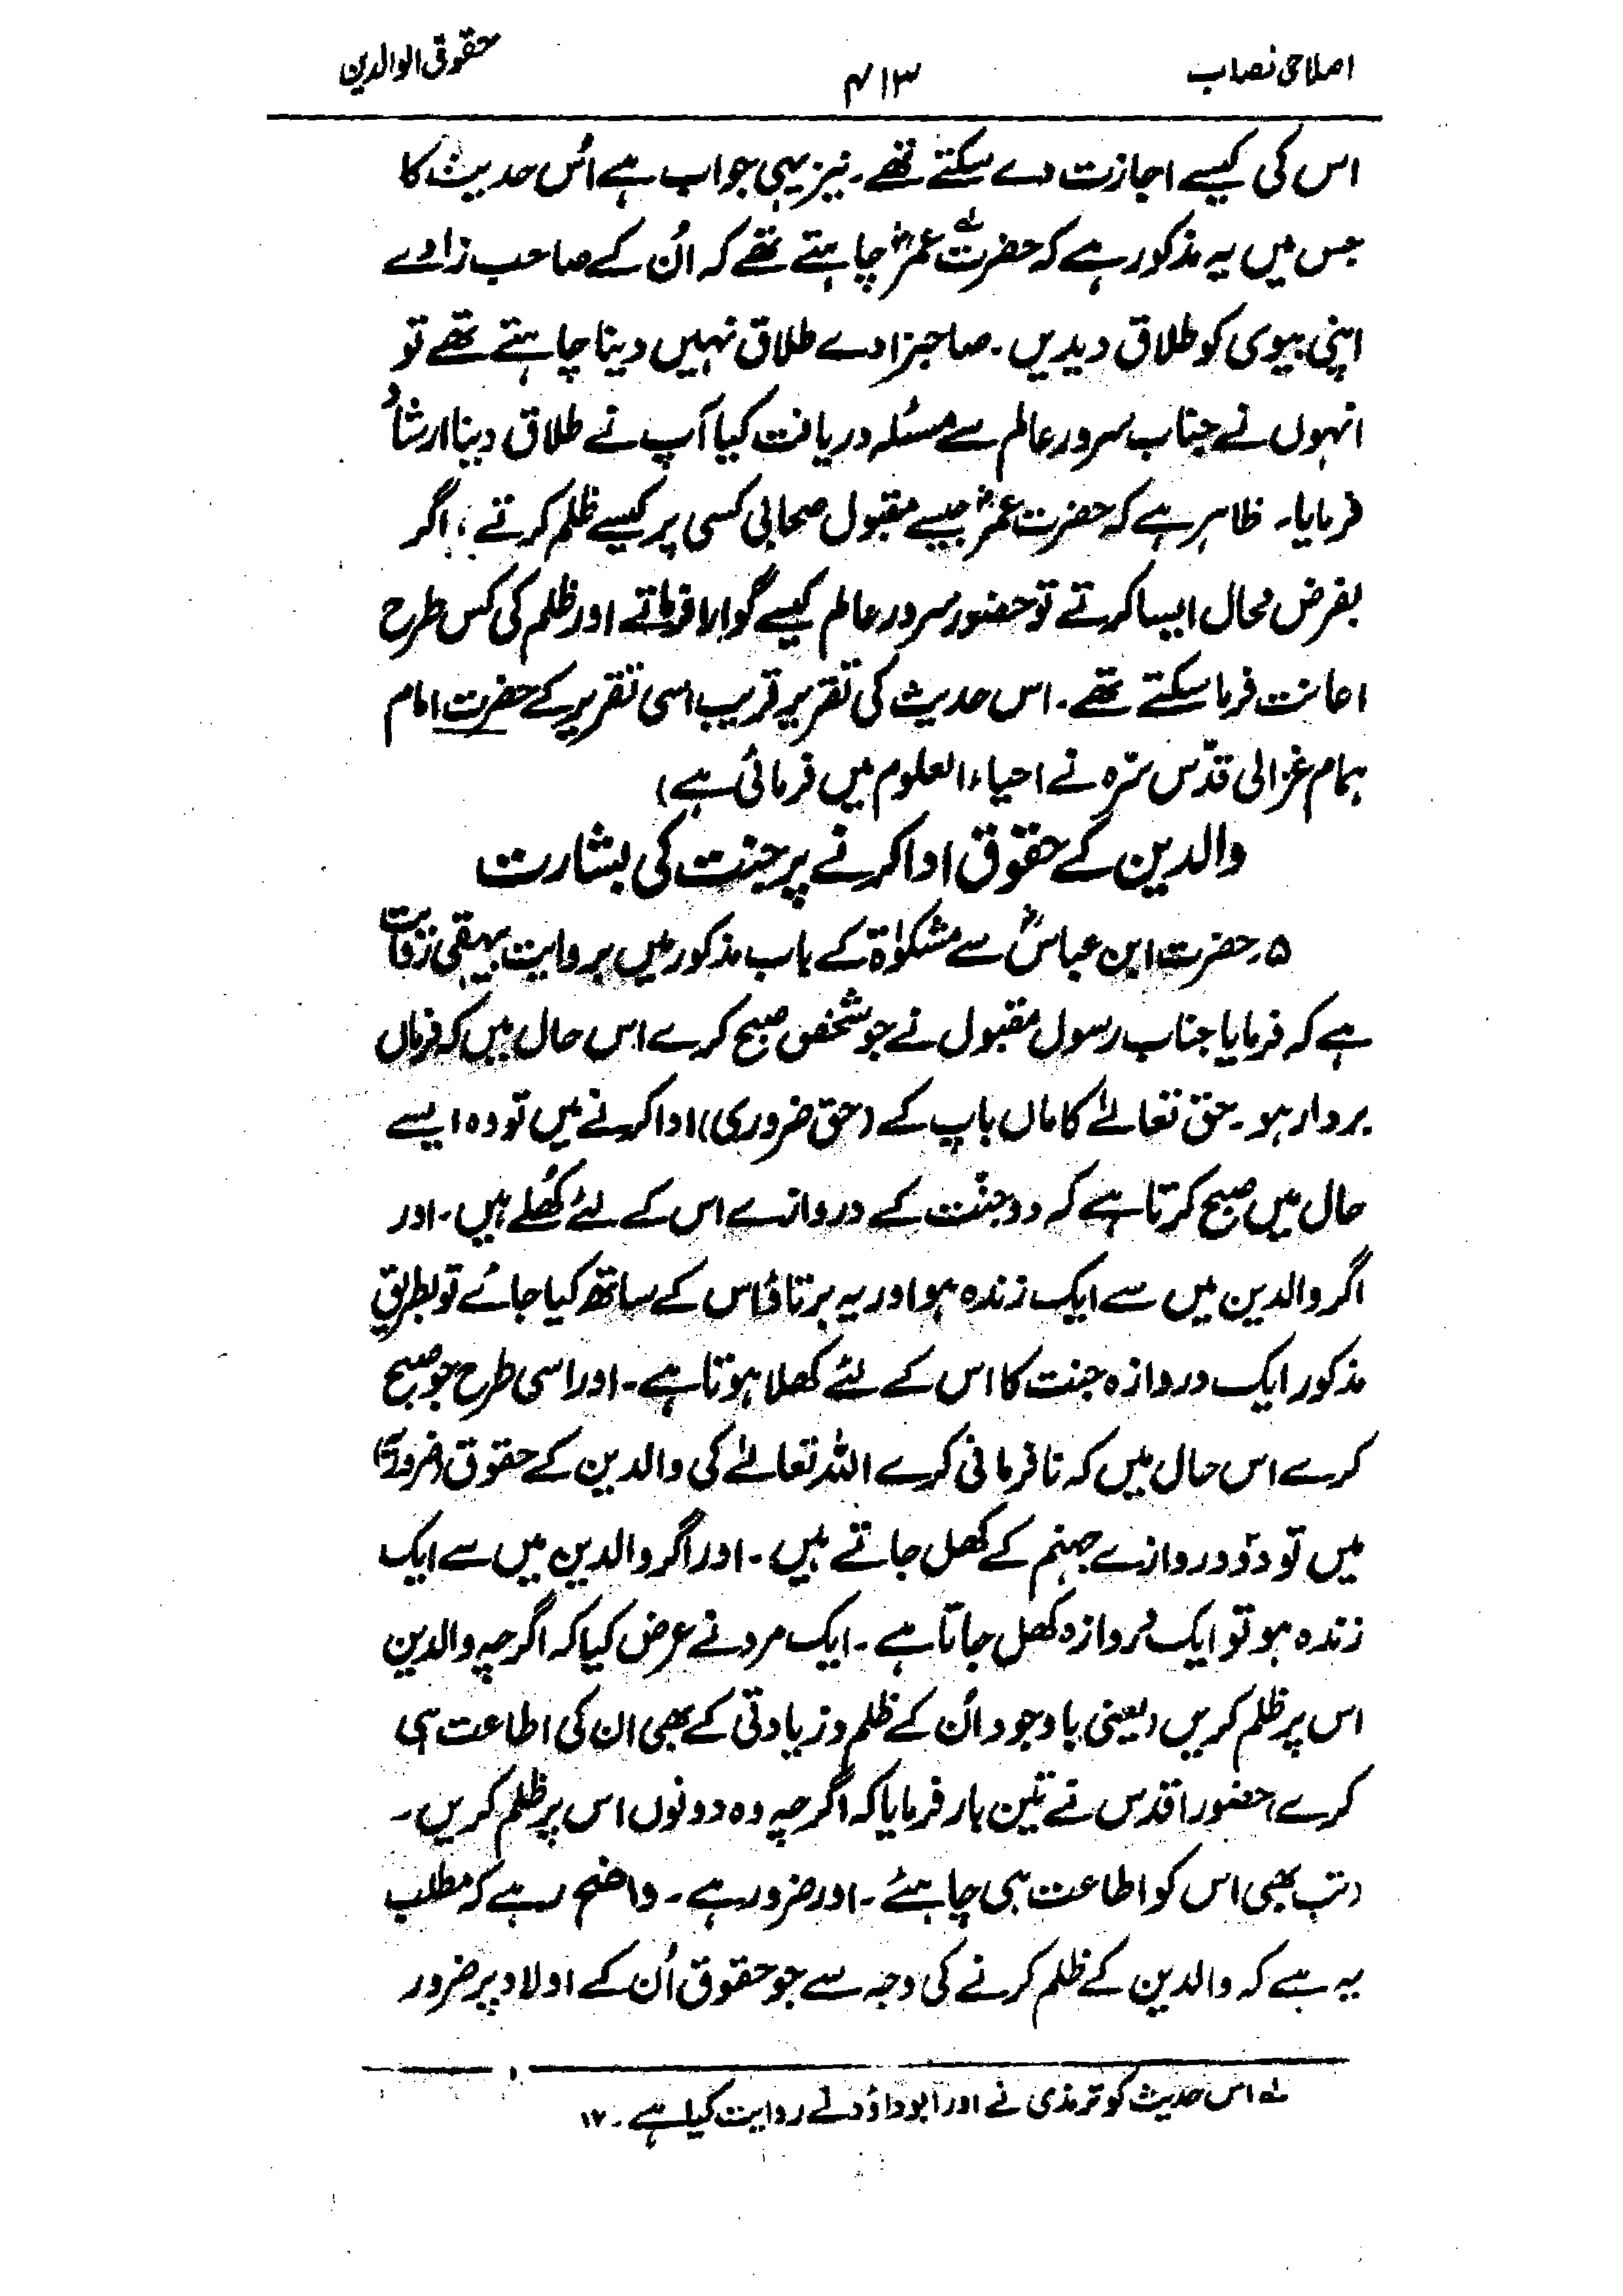 اصلاحی نصاب
۴۱۳
حقوق الوالدین
اس کی کیسے اجازت دے سکتے تھے۔ نیز یہی جواب ہے اُس حدیث کا
جس میں یہ مذکور ہے کہ حضرت عمرؓ چاہتے تھے کہ اُن کے صاحب زادے
اپنی بیوی کو طلاق دیدیں۔ صاحبزادے طلاق نہیں دینا چاہتے تھے تو
انہوں نے جناب سرور عالم سے مسئلہ دریافت کیا آپ نے طلاق دینا ارشاد
فرمایا۔ ظاہر ہے کہ حضرت عمرؓ جیسے مقبول صحابی کسی پر کیسے ظلم کرتے، اگر
بفرض محال ایسا کرتے تو حضور سرور عالم کیسے گوارا فرماتے اور ظلم کی کس طرح
اعانت فرما سکتے تھے۔ اس حدیث کی تقریر قریب اسی تقریر کے حضرت امام
ہمام غزالی قدّس سّرہ نے احیاء العلوم میں فرمائی ہے)
والدین کے حقوق ادا کرنے پر جنت کی بشارت
۵۔ حضرت ابن عباسؓ سے مشکوٰۃ کے باب مذکور میں بروایت بیہقی روایت
ہے کہ فرمایا جناب رسول مقبول نے جو شخص صبح کرے اس حال میں کہ فرماں
بردار ہو۔ حق تعالےٰ کا ماں باپ کے (حق ضروری) ادا کرنے میں تو وہ ایسے
حال میں صبح کرتا ہے کہ دو جنّت کے دروازے اس کے لئے کُھلے ہیں۔ اور
اگر والدین میں سے ایک زندہ ہو اور یہ برتاؤ اس کے ساتھ کیا جائے تو بطریق
مذکور ایک دروازہ جنت کا اس کے لئے کھلا ہوتا ہے۔ اور اسی طرح جو صبح
کرے اس حال میں کہ نافرمانی کرے اللہ تعالےٰ کی والدین کے حقوق (ضروریہ)
میں تو دو دروازے جہنم کے کھل جاتے ہیں۔ اور اگر والدین میں سے ایک
زندہ ہو تو ایک دروازہ کھل جاتا ہے۔ ایک مرد نے عرض کیا کہ اگرچہ والدین
اس پر ظلم کریں (یعنی باوجود اُن کے ظلم و زیادتی کے بھی ان کی اطاعت ہی
کرے) حضور اقدس نے تین بار فرمایا کہ اگرچہ وہ دونوں اس پر ظلم کریں۔
(تب بھی اس کو اطاعت ہی چاہئے۔ اور ضرور ہے۔ واضح رہے کہ مطلب
یہ ہے کہ والدین کے ظلم کرنے کی وجہ سے جو حقوق اُن کے اولاد پر ضرور
لہ اس حدیث کو ترمذی نے اور ابو داؤد نے روایت کیا ہے۔ ۱۲